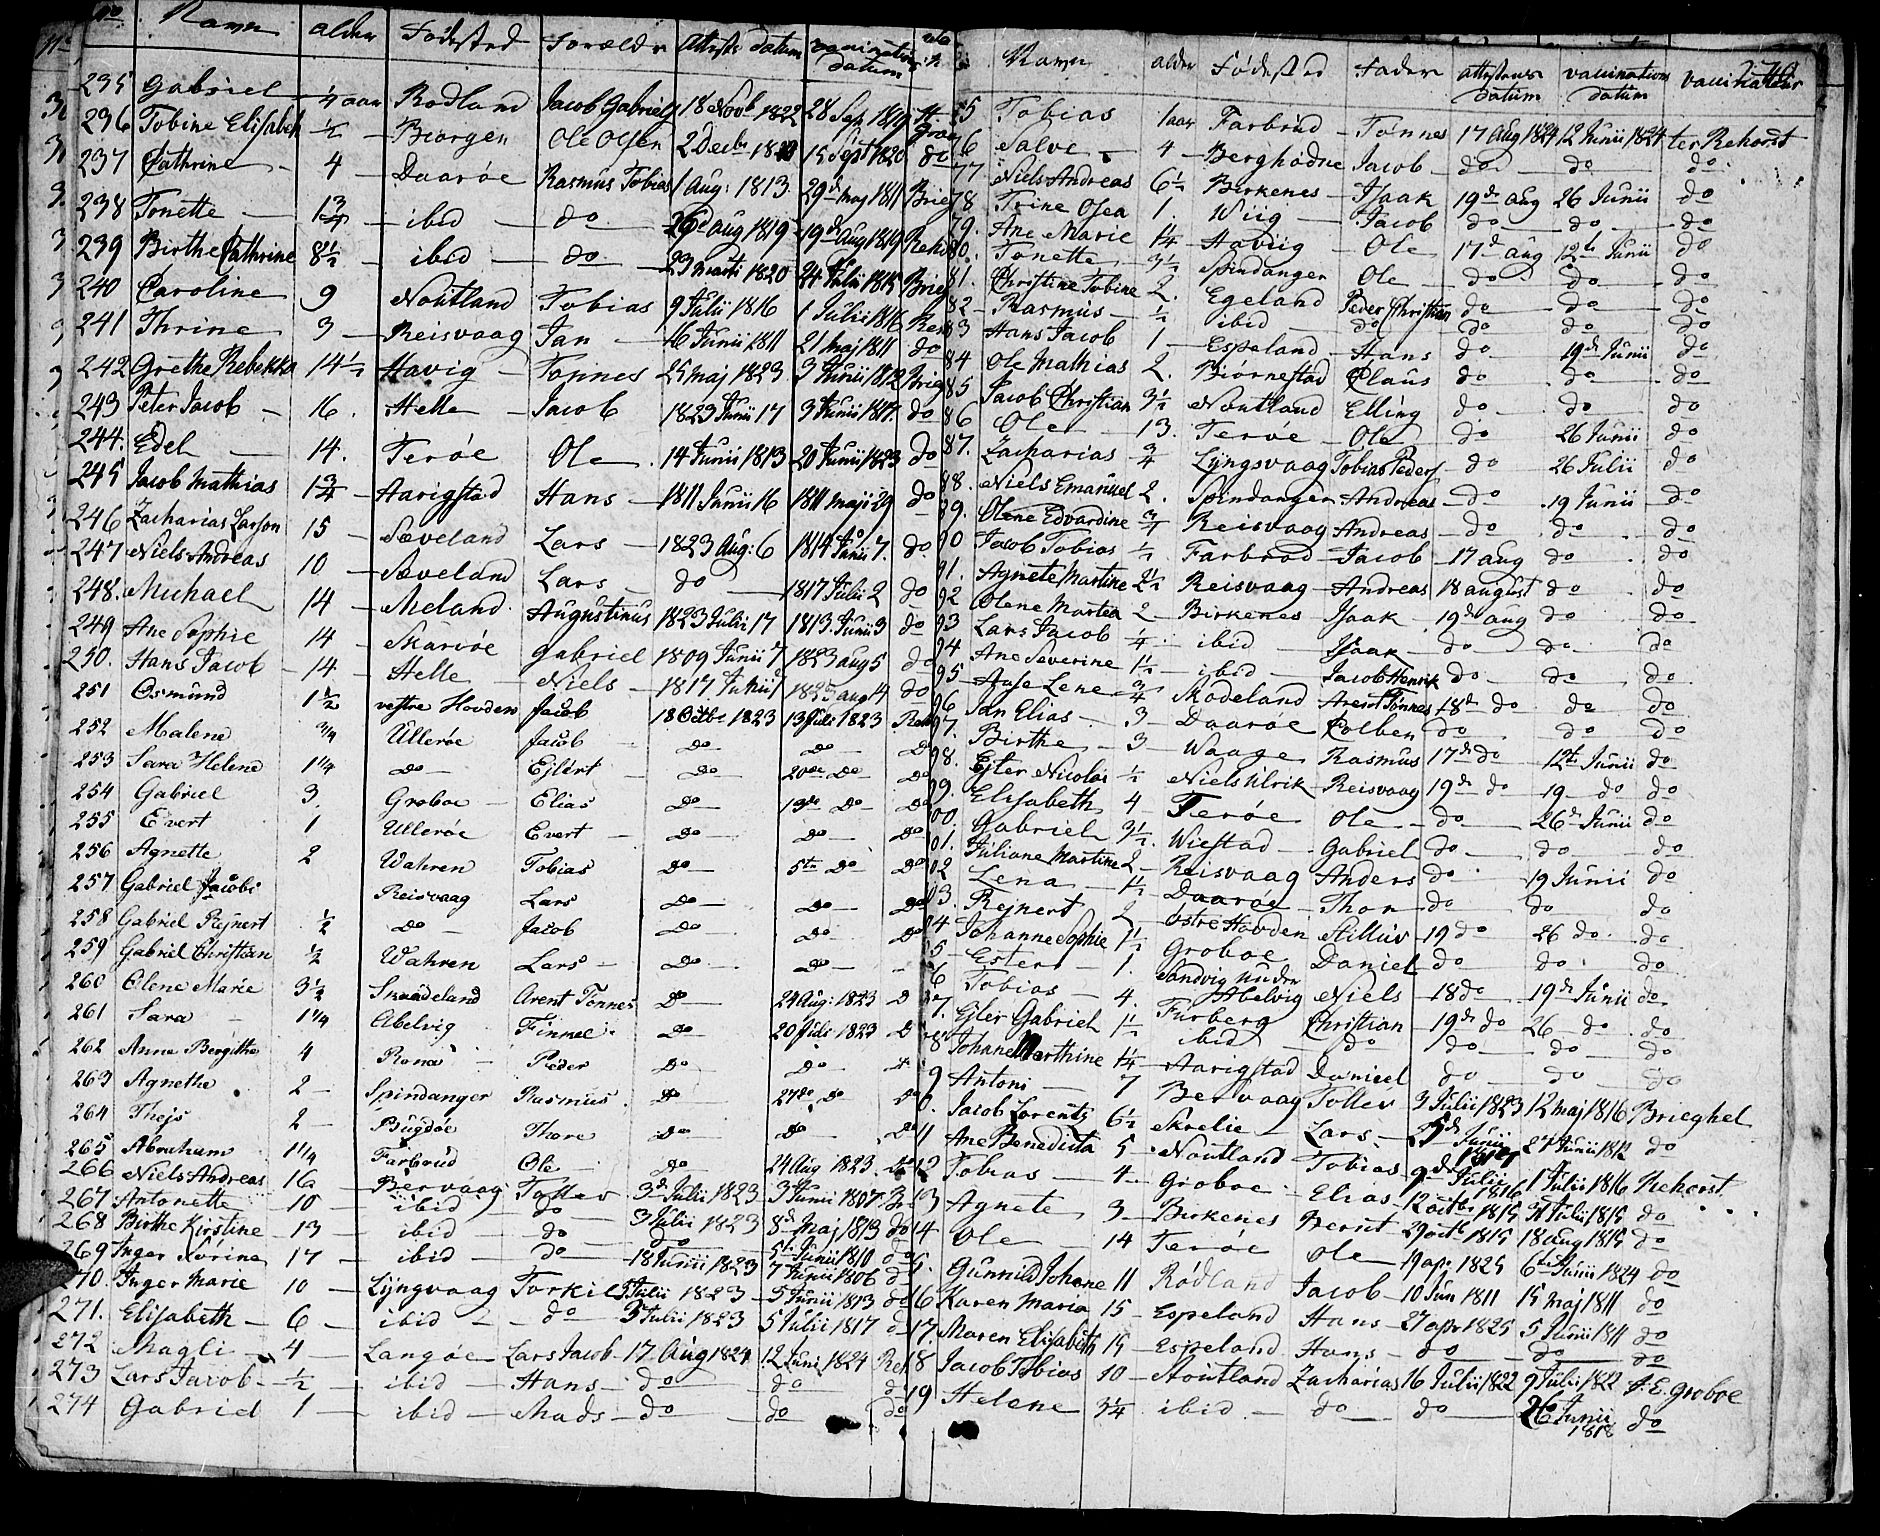 No Navn alder Fødested Forældre attests datum vaccinations datum
235 Gabriel ¼ aar Rodland Jacob Gabriels 18 Novb 1822 28 Sep 1819
236 Tobine Elisabeth ½ Biorgen Ole Olsen 2 Decbr 15 Sept 1820 do
237 Cathrine 4 Daarøe Rasmus Tobias 1 Aug: 1813 29de maj 1811 Brieg
238 Tonette 1¾ ibid do 26de aug 1819 19de Aug 1819 Rehor
239 Birthe Cathrine 8½ ibid do 23 marti 1820 24 Julii 1815 Brieg
240 Caroline 9 Noutland Tobias 9 Julii 1816 1 Julii 1816 Reh
241 Thrine 3 Reisvaag Jan 16 Junii 1811 21 maj 1811 do
242 Grethe Rebekka 14½ Havig Tonnes 25 maj 1823 3 Junii 1812 Brieg
243 Peter Jacob 16 Helle Jacob 1823 Junii 17 3 Junii 1817 do
244. Edel 14. Terøe Ole 14 Junii 1813 20 Junii 1823 do
245 Jacob Mathias 1¾ Aarigstad Hans 1811 Junii 16 1811 maji 29 do
246 Zacharias Larson 15 Sæveland Lars 1823 Aug: 6 1814 Juni 7. do
247 Niels Andreas 10 Sæveland Lars do 1817 Julii 2 do
248. Michael 14 Meland Augustinus 1823 Julii 17 1813 Junii 3 do
249 Ane Sophie 14 Skarvøe Gabriel 1809 Junii 7 1823 aug 5 do
250. Hans Jacob 14 Helle Niels 1817 1823 aug 4 do
251 Osmund 1½ vestre Hovden Jacob 18 Octbr 1823 13 Juli 1823 Reh
252 Malene ¾ Ullerøe Jacob do do do
253 Sara Helene 1¼ do Ejlert do 20de do do
254 Gabriel 3. Groboe Elias do 13de do do
255 Evert 1 Ullerøe Evert do do do
256 Agnette 2 Wahren Tobias do 5te do do
257 Gabriel Jacobs Reisvaag Lars do do do
258 Gabriel Rejnert ½ do Jacob do do do
259 Gabriel Christian ½ Wahren Lars do do
260 Olene Marie 3½ Skaadeland Arent Tønnes do 24 Aug: 1823 D
261 Sara 1¼ Abelvig Finnee do 20 Juli 1823 D
262 Anna Bergithe 4 Rona Peder do do
263 Agnethe 2 Spindanger Rasmus do 27de do do
264 Thejs 2 Bugdøe Thore do do do
265 Abraham 1¼ Farbrud Ole do 24 Aug 1823 do
266 Niels Andreas 16 Bervaag Tollev 3de Julii 1823 3 Junii 1807 Br
267 Antonette 10 ibid do 3 Julii 1823 8de Maj 1813 do
268 Birthe Kirstine 13 ibid do do 5te Junii 1810 do
269 Inger Sorine 17 ibid do 18 Junii 1823 7 Junii 1806 d
270. Inger Marie 10 Lyngvaag Torkil Julii 1823 5 Junii 1813 do
271. Elisabeth 6 ibid do 3 Julii 1823 5 Julii 1817 d
272 Magli 4 Langøe Lars Jacob 17 Aug 1824 12 Juni 1824 Reh
273 Lars Jacob ½ ibid Hans do do d
274 Gabriel 1 ibid Mads do do do
Navn alder Fødested Fader attestens datum vaccinations datum vaccinateur
5 Tobias 1 aar Farbrud Tønnes 17 aug 1824 12 Junii 1824 ter Rehorst
6 Salve 4 Berghødne Jacob do do do
77 Niels Andreas 6½ Birkenes Isaak 19de aug 26 Junii do
78 Trine Osea 1. Wiig Jacob do do do
79. Ane Marie 1¼ Haviig Ole 17de aug 12te Junii do
80. Tonette 3½ Spindanger Ole do do do
81. Christine Tobine 2. Egeland Peder Christian do do do
82 Rasmus ½ ibid do do do do
83 Hans Jacob 1 Espeland Hans do 19de Junii do
84 Ole Mathias 2. Biornestad Claus do do do
85 Jacob Christian 3½ Noutland Elling do do do
86 Ole 13. Terøe Ole do 26 Junii do
87. Zacharias ¾ Lyngsvaag Tobias Peders do 26 Julii do
88. Niels Emanuel 2. Spindanger Andreas do 19 Junii do
89. Olene Edvardine ¾ Reisvaag Andreas do do do
90 Jacob Tobias ½ Farbrod Jacob 17 aug do do
91. Agnete Martine 2½ Reisvaag Andreas 18 august do do
92 Olene Martea 2 Birkenes Isaak 19de aug do do
93 Lars Jacob ¼ ibid Isaak do do do
94 Ane Severine 1½ ibid Jacob Henrik do do do
95 Aase Lene ¾ Skodeland Arent Tønnes 18de do do do
96 Jan Elias 3 Daarøe Colben do do do
97. Birthe 3 Waage Rasmus 17de do 12te Junii do
98. Ejler Nicolai ½ Niels Ulrik Reisvaag 19de do 19 do do
99. Elisabeth 4 Terøe Ole do 26de Junii do
00. Gabriel 3½ Wiestad Gabriel do do do
01. Juliane Martine 2 Reisvaag Anders do 19 Junii do
02 Lena 1½ Daarøe Thor do do do
03. Rejnert 2 Østre Hovden Stillüv 19 do 26 do do
04 Johanne Sophie 1½ Groboe Daniel do do do
5 Ester 1. Sandvig under Abelvig Niels 18 do 19de Junii do
6 Tobias 4. Furberg Christian 19de do 26 do do
7. Ejler Gabriel 1½ ibid do do do do
8 Johane Marthine 1¼ Aarigstad Daniel do do do
9 Antoni 7 Bervaag Tollev 3 Julii 1823 12 maj 1816 Brieghel
0. Jacob Lorents 6½ Skrelie Lars 25de Junii Junii 1812 do
11 Ane Benedicta 5 Noutland Tobias 9de Julii 1816 1 Julii 1816 Rehorst
12 Tobias 4 Groboe Elias 12 octbr 1815 31 Julii 1815 do
13 Agnete 3 Birkenes Berent 29 octbr 1815 18 aug 1815 do
14 Ole 14 Terøe Ole 19 apr 1825 6te Junii 1824 do
5. Gunnild Johane 11 Rødland Jacob 10 Jun 1811 15 maj 1811 do
16 Karen Maria 15 Espeland Hans 27 apr 1825 5 Junii 1811 do
17. Maren Elisabeth 15 Espeland Hans do do do
18 Jacob Tobias 10 Noutland Zacharias 16 Julii 1822 9 Julii 1822 J. E. Groboe
19 Helene 3¼ ibid do do 26 Junii 1818 do